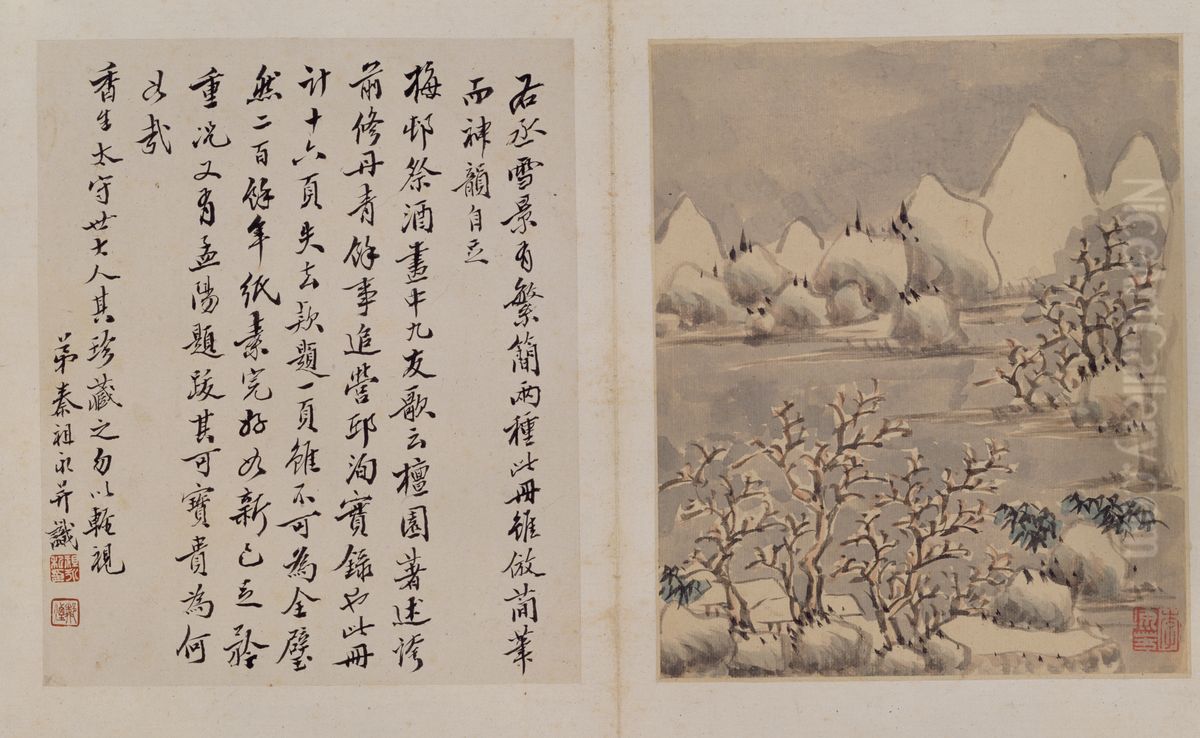 右丞雪景有繁簡兩種此冊雖倣簡筆
而神韻自足
梅邨祭酒畫中九友歌云檀園著述誇
前修丹青餘事追營邱洵實錄也此冊
計十六頁失去款題一頁雖不可為全璧
然二百餘年紙素完好如新已足矜
重況又有孟陽題跋其可寶貴為何
如哉
香生太守世大人其珍藏之勿以輕視
弟秦祖永并識